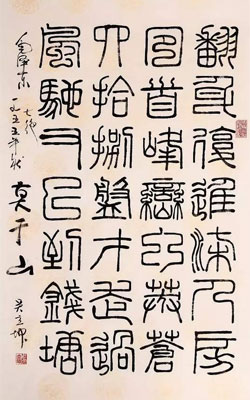 翻身復進柒人房
回首峰巒入莽蒼
四拾捌盤才走過
風馳又已到錢塘
毛澤東
七绝
一九五五年
莫干山